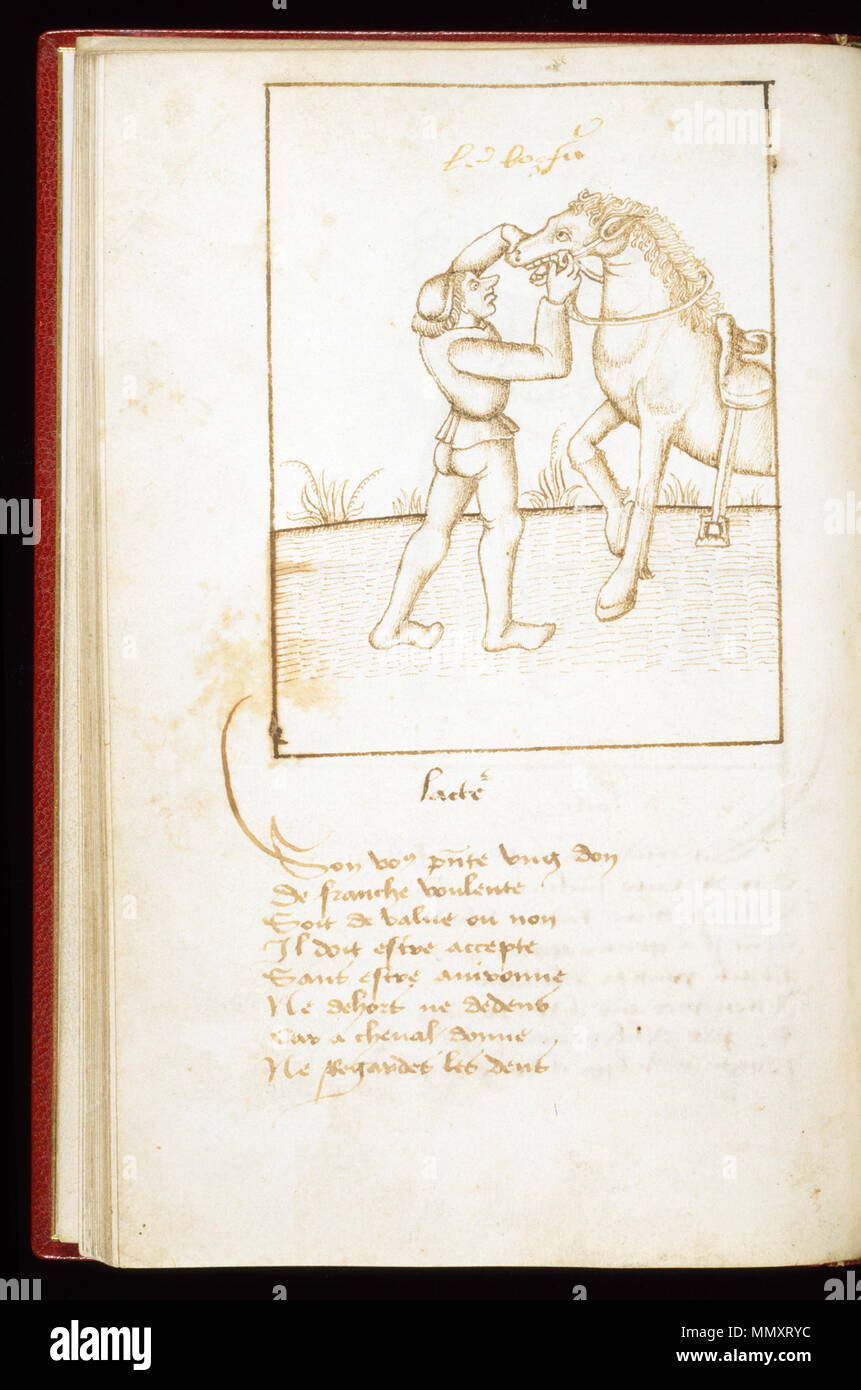 lacte
Son vo⁹ pñte vng don
De franche voulente
Soit de value ou non
Il doit estre accepte
Sans estre auironne
Ne dehors ne dedens
Car a cheual donne
Ne Regardes les dens
alamy
a
alamy
Image ID: MMXRYC
www.alamy.com